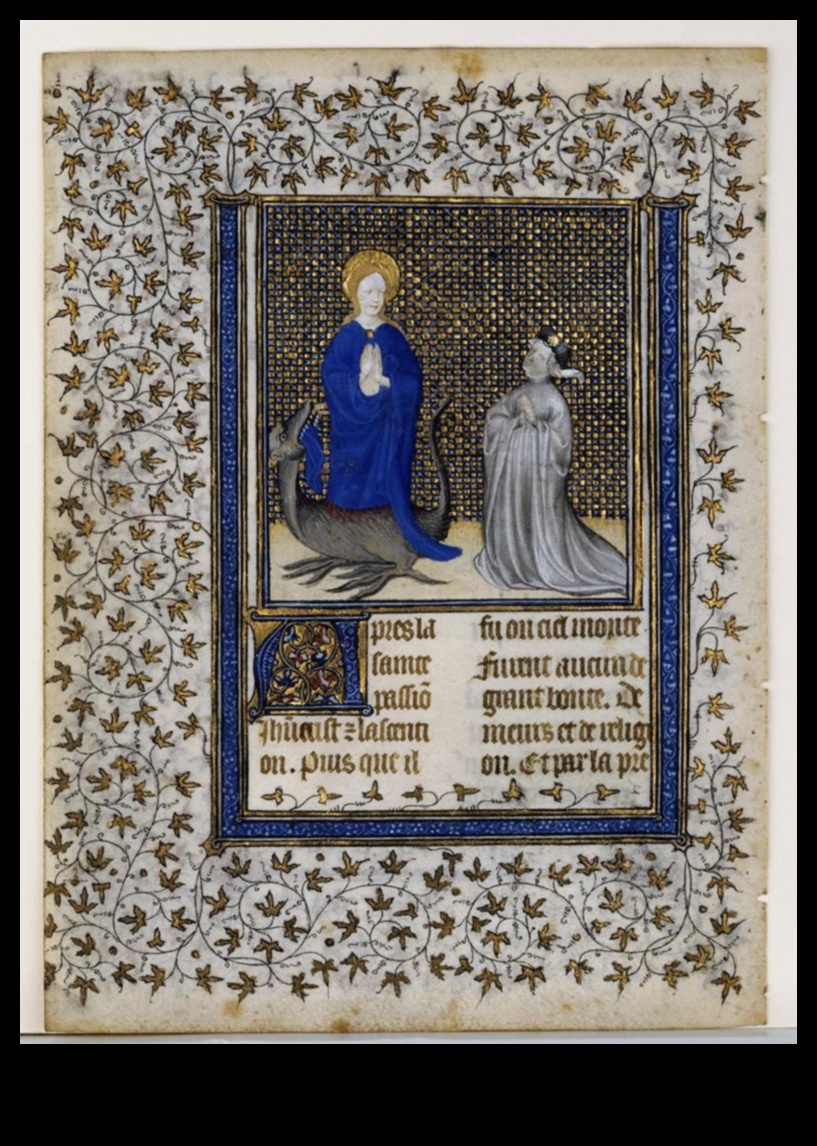 Apres la
sainte
passiō
Jhūcrist ⁊ lascenti
on. Puis que il
fu ou ciel monte
furent aucun de
grant bonte. De
meurs et de religi
on. Et par la pre